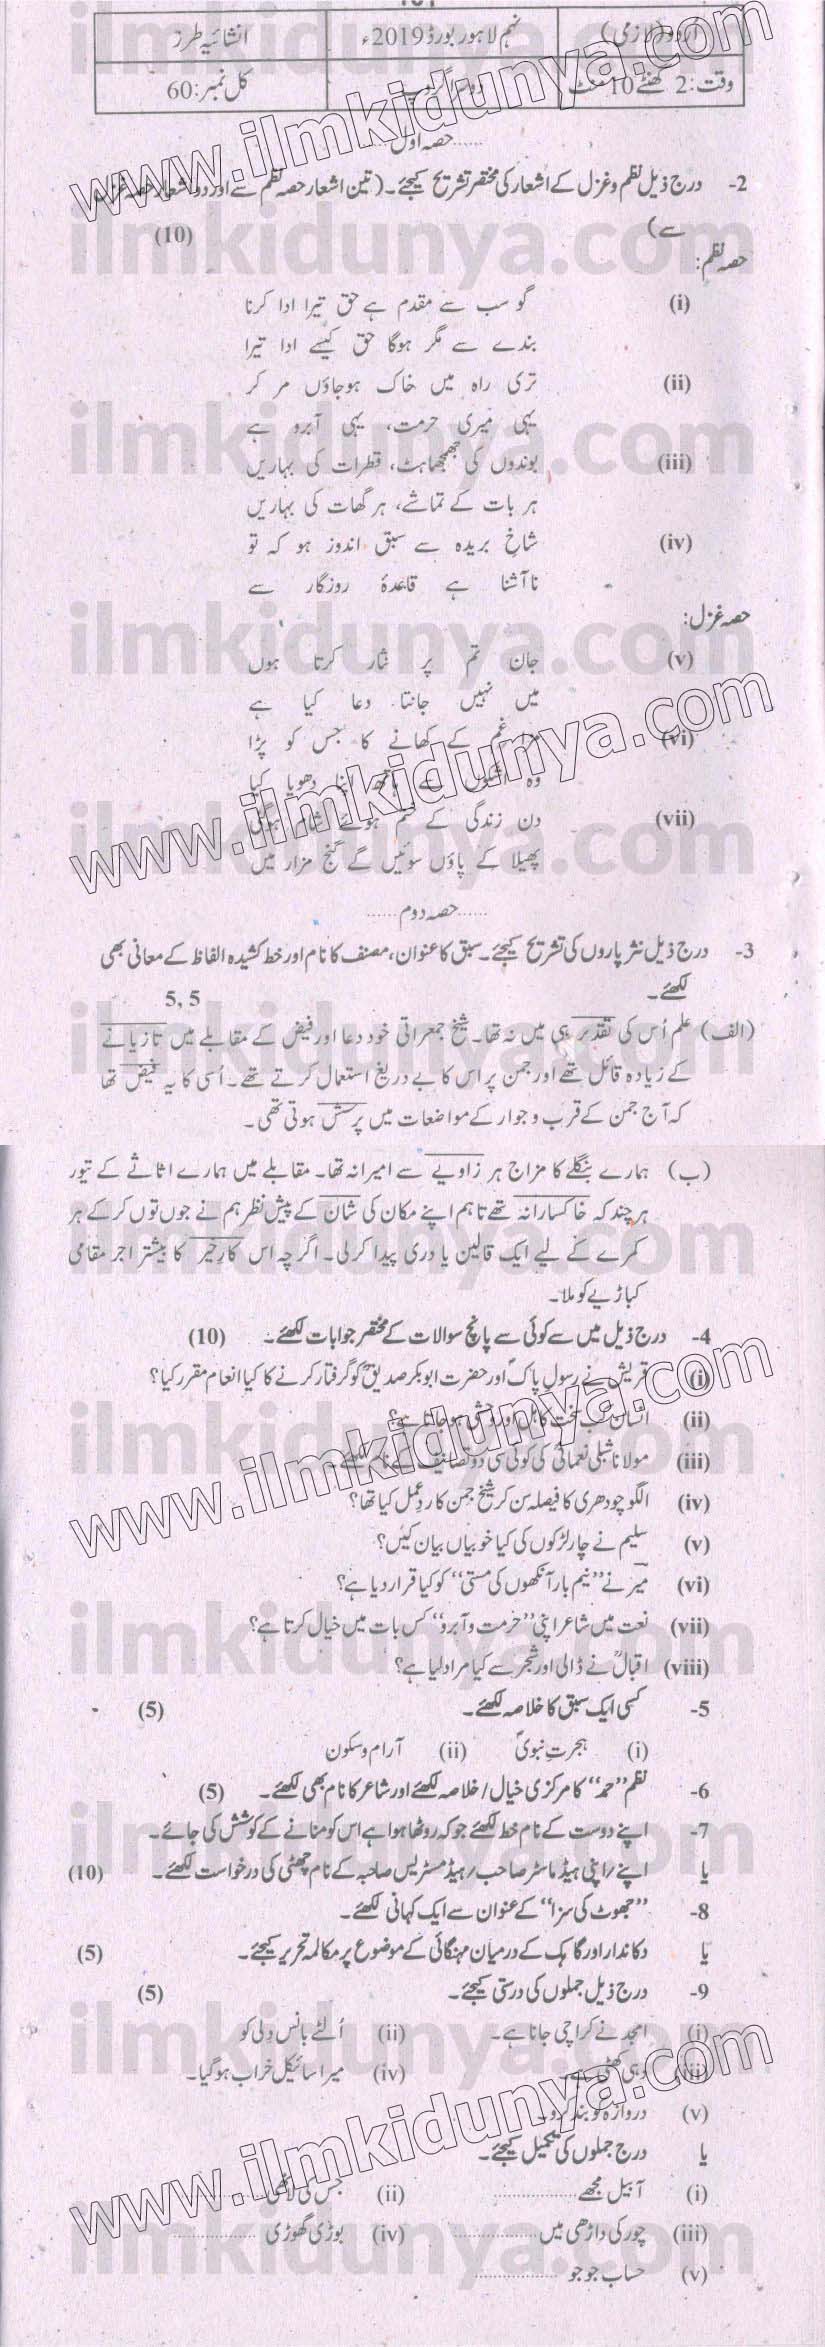 اردو (لازمی) نہم لاہور بورڈ 2019ء انشائیہ طرز
وقت: 2 گھنٹے 10 منٹ دوسرا گروپ کل نمبر: 60
......حصہ اول......
2- درج ذیل نظم و غزل کے اشعار کی مختصر تشریح کیجئے۔ (تین اشعار حصہ نظم سے اور دو اشعار حصہ غزل
سے) (10)
حصہ نظم:
(i) گو سب سے مقدم ہے حق تیرا ادا کرنا
بندے سے مگر ہوگا حق کیسے ادا تیرا
(ii) تری راہ میں خاک ہوجاؤں مر کر
یہی میری حرمت، یہی آبرو ہے
(iii) بوندوں کی جھمجھاہٹ، قطرات کی بہاریں
ہر بات کے تماشے، ہر گھات کی بہاریں
(iv) شاخ بریدہ سے سبق اندوز ہو کہ تو
ناآشنا ہے قاعدۂ روزگار سے
حصہ غزل:
(v) جان تم پر نثار کرتا ہوں
میں نہیں جانتا دعا کیا ہے
(vi) مزا غم کے کھانے کا جس کو پڑا
وہ اشکوں سے ہاتھ اپنا دھویا کیا
(vii) دن زندگی کے ختم ہوئے شام ہوگئی
پھیلا کے پاؤں سوئیں گے کنج مزار میں
......حصہ دوم......
3- درج ذیل نثر پاروں کی تشریح کیجئے۔ سبق کا عنوان، مصنف کا نام اور خط کشیدہ الفاظ کے معانی بھی
لکھئے۔ 5, 5
(الف) علم اُس کی تقدیر ہی میں نہ تھا۔ شیخ جمعراتی خود دعا اور فیض کے مقابلے میں تازیانے
کے زیادہ قائل تھے اور جمن پر اس کا بے دریغ استعمال کرتے تھے۔ اُسی کا یہ فیض تھا
کہ آج جمن کے قرب و جوار کے مواضعات میں پرسش ہوتی تھی۔
(ب) ہمارے بنگلے کا مزاج ہر زاویے سے امیرانہ تھا۔ مقابلے میں ہمارے اثاثے کے تیور
ہرچند کہ خاکسارانہ تھے تاہم اپنے مکان کی شان کے پیش نظر ہم نے جوں توں کرکے ہر
کمرے کے لیے ایک قالین یا دری پیدا کرلی۔ اگرچہ اس کارِ خیر کا بیشتر اجر مقامی
کباڑیے کو ملا۔
4- درج ذیل میں سے کوئی سے پانچ سوالات کے مختصر جوابات لکھئے۔ (10)
(i) قریش نے رسول پاکؐ اور حضرت ابوبکر صدیقؓ کو گرفتار کرنے کا کیا انعام مقرر کیا؟
(ii) انسان کب سخت کاہل اور وحشی ہوجاتا ہے؟
(iii) مولانا شبلی نعمانی کی کوئی سی دو تصانیف کے نام لکھئے۔
(iv) الگو چودھری کا فیصلہ سن کر شیخ جمن کا ردِعمل کیا تھا؟
(v) سلیم نے چار لڑکوں کی کیا خوبیاں بیان کیں؟
(vi) میرؔ نے ”نیم باز آنکھوں کی مستی“ کو کیا قرار دیا ہے؟
(vii) نعت میں شاعر اپنی ”حرمت و آبرو“ کس بات میں خیال کرتا ہے؟
(viii) اقبالؒ نے ڈالی اور شجر سے کیا مراد لیا ہے؟
5- کسی ایک سبق کا خلاصہ لکھئے۔ (5)
(i) ہجرتِ نبویؐ (ii) آرام و سکون
6- نظم ”حمد“ کا مرکزی خیال/خلاصہ لکھئے اور شاعر کا نام بھی لکھئے۔ (5)
7- اپنے دوست کے نام خط لکھئے جو کہ روٹھا ہوا ہے اس کو منانے کے کوشش کی جائے۔
یا اپنے/اپنی ہیڈ ماسٹر صاحب/ہیڈ مسٹریس صاحبہ کے نام چھٹی کی درخواست لکھئے۔ (10)
8- ”جھوٹ کی سزا“ کے عنوان سے ایک کہانی لکھئے۔
یا دکاندار اور گاہک کے درمیان مہنگائی کے موضوع پر مکالمہ تحریر کیجئے۔ (5)
9- درج ذیل جملوں کی درستی کیجئے۔ (5)
(i) امجد نے کراچی جانا ہے۔ (ii) اُلٹے بانس دِلی کو
(iii) دہی کھٹی ہے۔ (iv) میرا سائیکل خراب ہوگیا۔
(v) دروازہ کو بند کردو۔
یا درج جملوں کی تکمیل کیجئے۔
(i) آ بیل مجھے .......... (ii) جس کی لاٹھی ..........
(iii) چور کی داڑھی میں .......... (iv) بوڑی گھوڑی ..........
(v) حساب جو جو ..........
www.ilmkidunya.com